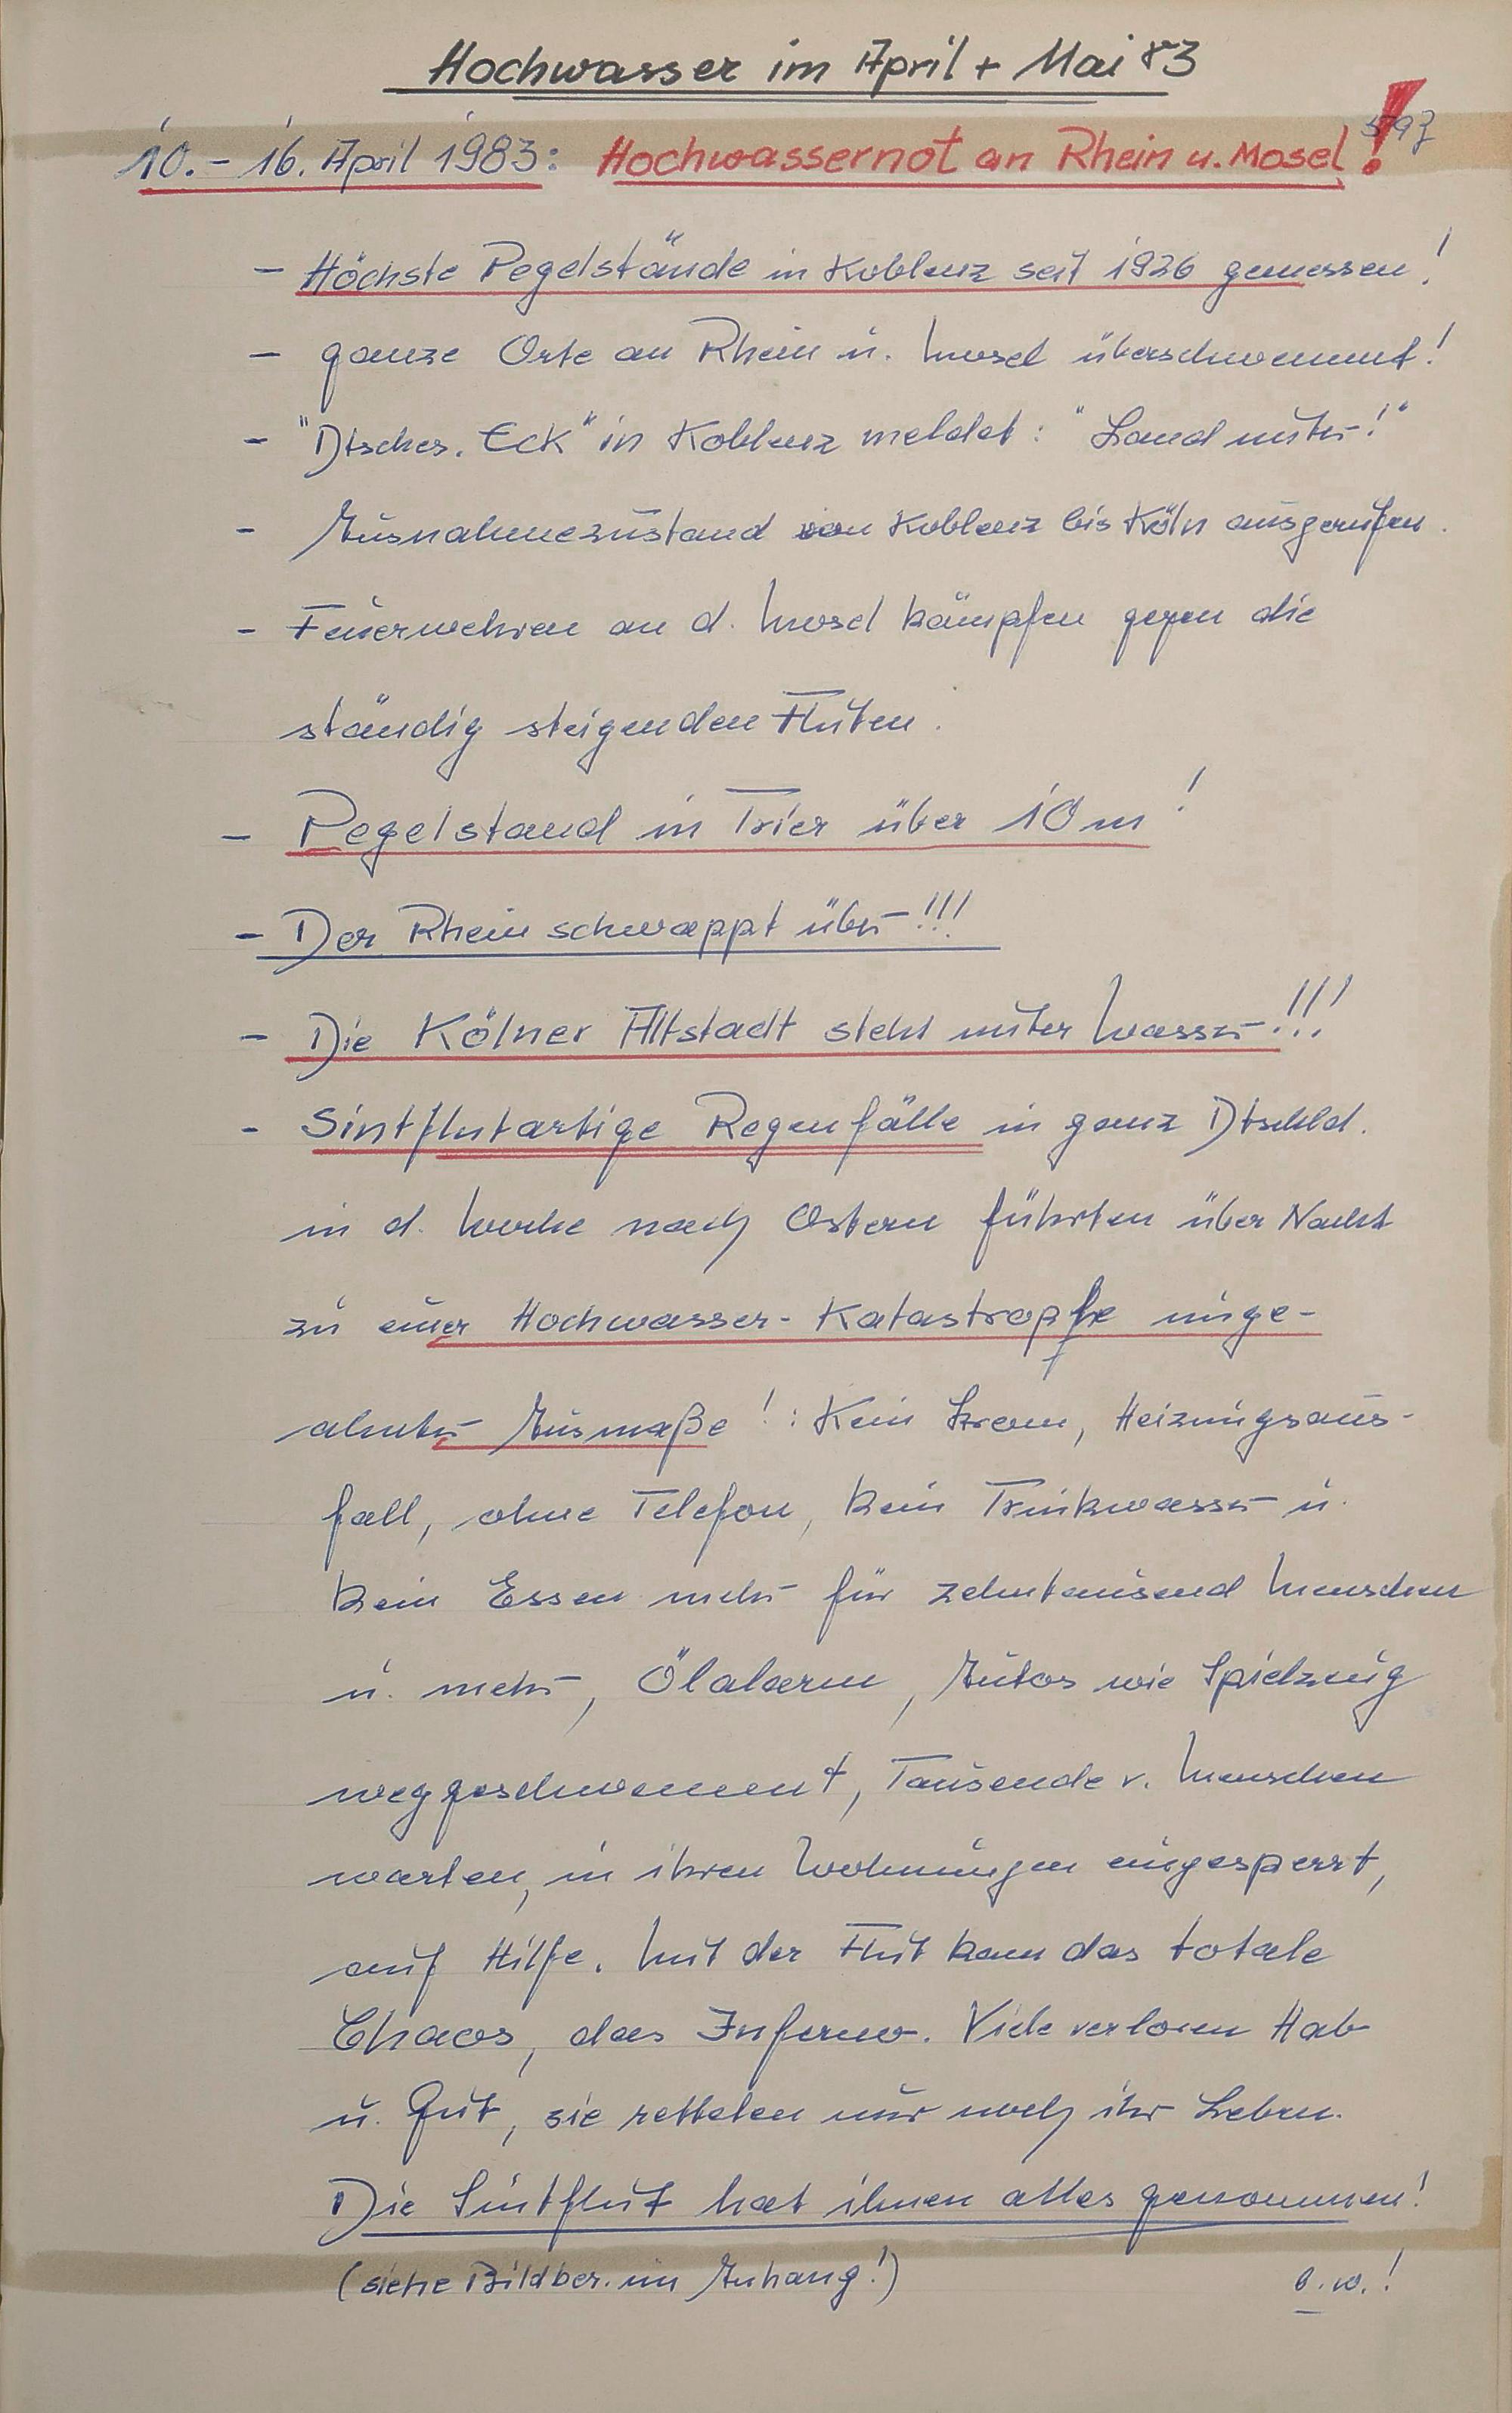 Hochwasser im April + Mai 83
10. - 16. April 1983: Hochwassernot an Rhein u. Mosel!
- Höchste Pegelstände in Koblenz seit 1926 gemessen!
- ganze Orte an Rhein u. Mosel überschwemmt!
- "Dtsches. Eck" in Koblenz meldet: "Land unter!"
- Ausnahmezustand von Koblenz bis Köln ausgerufen.
- Feuerwehren an d. Mosel kämpfen gegen die
ständig steigenden Fluten.
- Pegelstand in Trier über 10 m!
- Der Rhein schwappt über!!!
- Die Kölner Altstadt steht unter Wasser!!!
- Sintflutartige Regenfälle in ganz Dtschld.
in d. Woche nach Ostern führten über Nacht
zu einer Hochwasser-Katastrophe unge-
ahnter Ausmaße!: Kein Strom, Heizungsaus-
fall, ohne Telefon, kein Trinkwasser u.
kein Essen mehr für zehntausend Menschen
u. mehr, Ölalarm, Autos wie Spielzeug
weggeschwemmt, Tausende v. Menschen
warten, in ihren Wohnungen eingesperrt,
auf Hilfe. Mit der Flut kam das totale
Chaos, das Inferno. Viele verloren Hab
u. Gut, sie retteten nur noch ihr Leben.
Die Sintflut hat ihnen alles genommen!
(siehe Bildber. im Anhang!) b.w.!